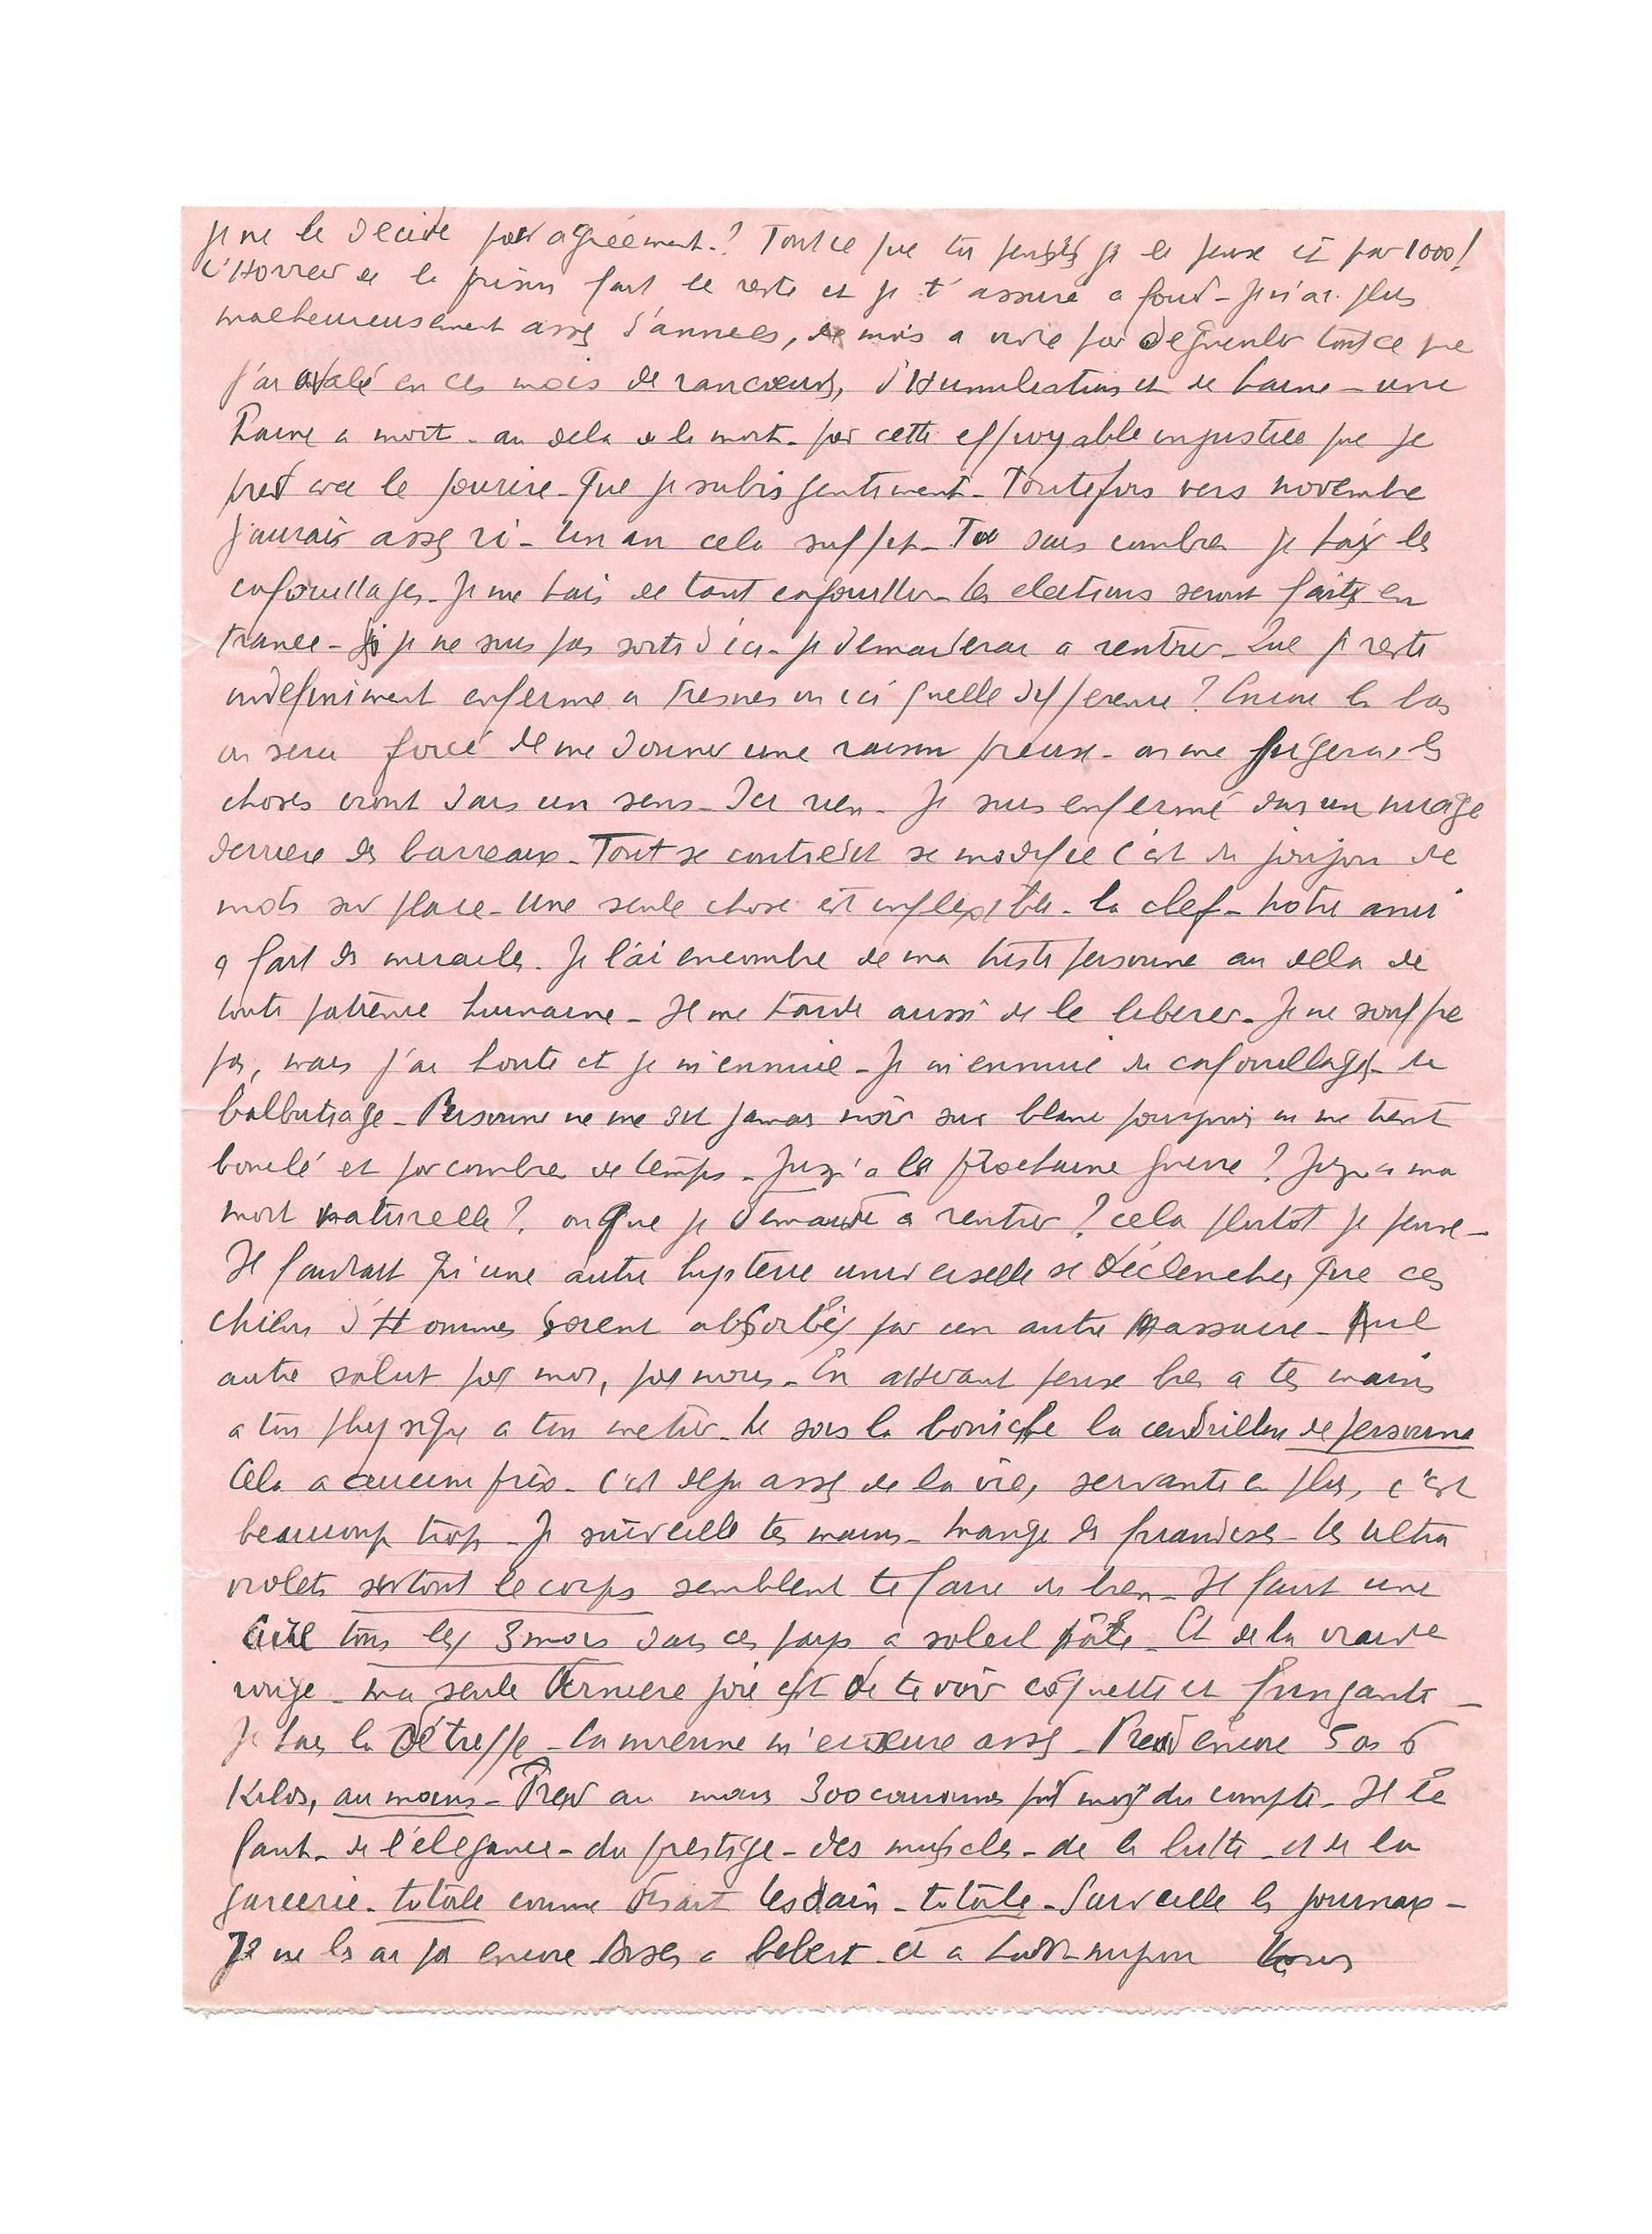 je ne le decide par agréement.? Tout ce que tu penses je le pense et par 1000!
L'Horreur de la prison fait le reste et je t'assure a fond - Je n'ai plus
malheureusement assez d'annees, de mois a vivre pour degueuler tout ce que
j'ai avalé en ces mois de rancoeurs, d'Humiliations et de haine - une
Haine a mort - au dela de la mort - par cette effroyable injustice que je
prend avec le sourire - que je subis gentiment - Toutefois vers novembre
j'aurais assez ri - Un an cela suffit - Tu sais combien je hais les
cafouillages - Je me hais de tant cafouiller - les elections seront faites en
France - Si je ne suis pas sorti d'ici - je demanderai a rentrer - Que je reste
indefiniment enfermé a Fresnes ou ici quelle difference ? Encore la bas
on sera forcé de me donner une raison precise - on me jugera, les
choses iront dans un sens - Ici rien - Je suis enfermé dans un nuage
derriere des barreaux - Tout se contredit se modifie c'est du joujou de
mots sur place - Une seule chose est inflexible - la clef - Notre ami
a fait des miracles. Je l'ai encombré de ma triste personne au dela de
toute patience humaine - Il me tarde aussi de le liberer - Je ne souffre
pas, mais j'ai honte et je m'ennuie - Je m'ennuie de cafouillages - de
balbutiage - Personne ne me dit jamais noir sur blanc pourquoi on me tient
bouclé et pour combien de temps - Jusqu'a la prochaine guerre ? Jusqu'a ma
mort naturelle ? ou que je demande a rentrer ? cela plutot je pense -
Il faudrait qu'une autre hysterie universelle se déclenche, que ces
chiens d'Hommes soient absorbés par un autre massacre - Nul
autre salut pour moi, pour nous - En attendant pense bien a tes mains
a ton physique a ton metier - Ne sois la boniche la cendrillon de personne
Cela a aucun prix - C'est deja assez de la vie, servante en plus, c'est
beaucoup trop - Je surveille tes mains - mange des friandises - les ultra
violets surtout le corps semblent te faire du bien - Il faut une
cure tous les 3 mois dans ces pays a soleil pâle - Et de la viande
rouge - ma seule derniere joie est de te voir coquette et fringante -
Je hais la détresse - la mienne m'ecoeure assez - Prend encore 5 ou 6
Kilos, au moins - Prend au moins 300 couronnes par mois du compte - Il te
faut - de l'élegance - du prestige - des muscles - de la lutte - et de la
garcerie - totale comme disait - totale - Surveille les journaux -
Je ne les ai pas encore Bises a bebert - et a Louis